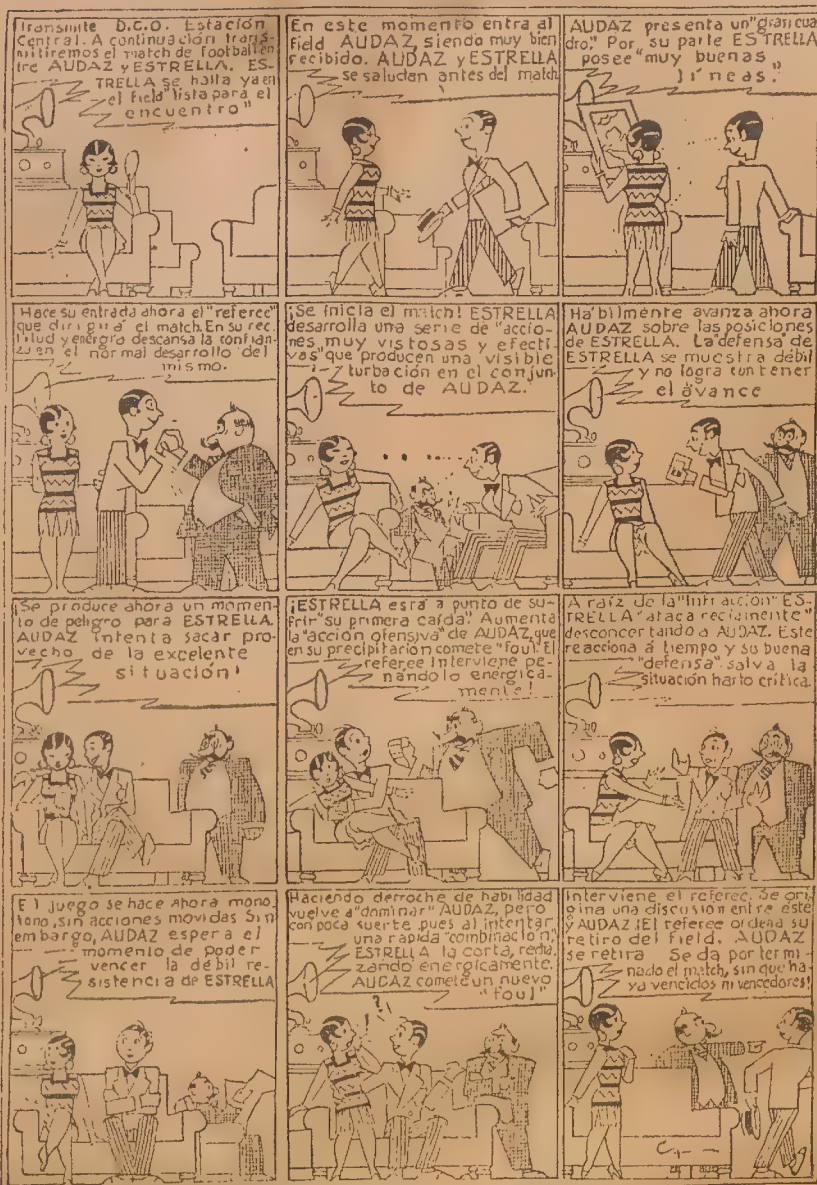 Transmite D.C.O. Estación
Central. A continuación trans-
mitiremos el match de football en
tre AUDAZ y ESTRELLA. ES-
TRELLA se halla ya en
el field "lista para el
encuentro"
En este momento entra al
field AUDAZ, siendo muy bien
recibido. AUDAZ y ESTRELLA
se saludan antes del match
AUDAZ presenta un "gran cua
dro." Por su parte ESTRELLA
posee "muy buenas
líneas."
Hace su entrada ahora el "referee"
que dirigirá el match. En su rec
titud y energía descansa la confian-
za en el normal desarrollo del
mismo.
¡Se inicia el match! ESTRELLA
desarrolla una serie de "accio-
nes muy vistosas y efecti
vas" que producen una visible
turbación en el conjun-
to de AUDAZ.
Hábilmente avanza ahora
AUDAZ sobre las posiciones
de ESTRELLA. La "defensa" de
ESTRELLA se muestra débil
y no logra contener
el avance
¡Se produce ahora un momen-
to de peligro para ESTRELLA.
AUDAZ intenta sacar pro-
vecho de la excelente
situación!
¡ESTRELLA está a punto de su-
frir "su primera caída". Aumenta
la "acción ofensiva" de AUDAZ, que
en su precipitación comete "foul". El
referee interviene pe-
nándolo enérgica-
mente!
A raíz de la "infracción" ES-
TRELLA "ataca reciamente"
desconcertando a AUDAZ. Este
reacciona a tiempo y su buena
"defensa" salva la
situación harto crítica.
El juego se hace ahora monó
tono, sin acciones movidas Sin
embargo, AUDAZ espera el
momento de poder
vencer la débil re-
sistencia de ESTRELLA
Haciendo derroche de habilidad
vuelve a "dominar" AUDAZ, pero
con poca suerte, pues al intentar
una rápida "combinación",
ESTRELLA la corta, recha
zando enérgicamente.
AUDAZ comete un nuevo
"foul"
! ? !
Interviene el referee. Se ori
gina una discusión entre éste
y AUDAZ ¡El referee ordena su
retiro del field. AUDAZ
se retira Se da por termi-
nado el match, sin que ha-
ya vencidos ni vencedores!